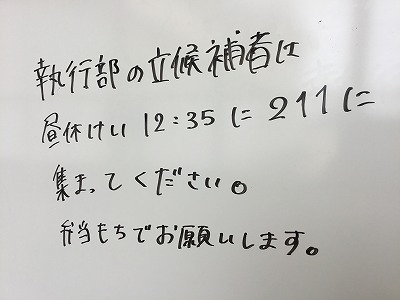 執行部の立候補者は
昼休けい 12:35 に 211 に
集まってください。
弁当もちでお願いします。